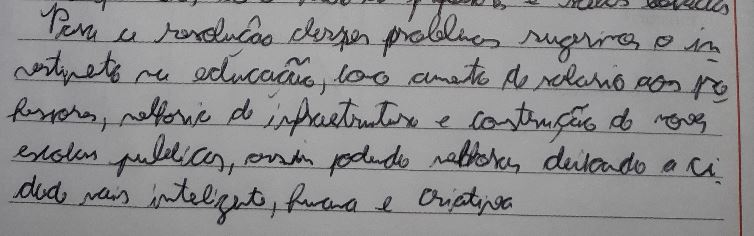 Para a resolução desses problemas sugerimos o in-
vestimeto na educação, com aumeto de salario aos pro
fessores, melhoria de infraestrutura e construção de novas
escolas publicas, assim podendo melhorar, deixando a ci-
dade mais inteligente, humana e criativa